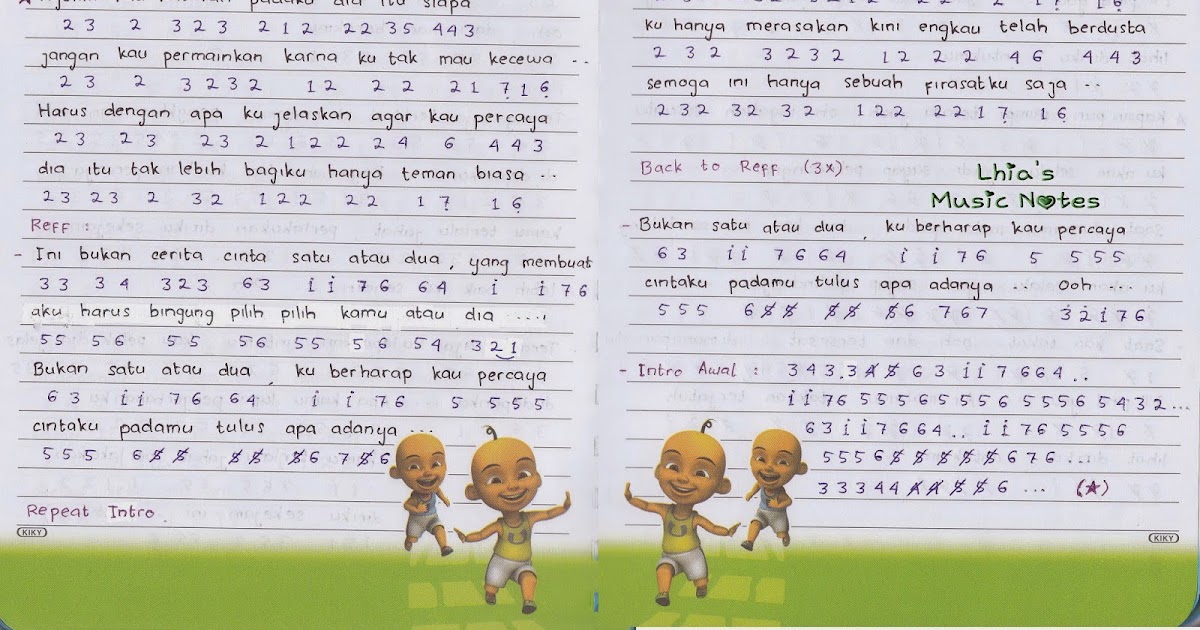 padaku dia itu siapa
2 3 2 3 2 3 2 1 2 2 2 3 5 4 4 3
jangan kau permainkan karna ku tak mau kecewa ..
2 3 2 3 2 3 2 1 2 2 2 2 1 7̣ 1 6̣
Harus dengan apa ku jelaskan agar kau percaya
2 3 2 3 2 3 2 1 2 2 2 4 6 4 4 3
dia itu tak lebih bagiku hanya teman biasa ..
2 3 2 3 2 3 2 1 2 2 2 2 1 7̣ 1 6̣
Reff :
- Ini bukan cerita cinta satu atau dua, yang membuat
3 3 3 4 3 2 3 6 3 i i 7 6 6 4 i i 7 6
aku harus bingung pilih pilih kamu atau dia ....,
5 5 5 6 5 5 5 6 5 5 5 6 5 4 3 2 1
Bukan satu atau dua, ku berharap kau percaya
6 3 i i 7 6 6 4 i i 7 6 5 5 5 5
cintaku padamu tulus apa adanya ...
5 5 5 6 5̸ 5̸ 5̸ 5̸ 5̸ 6 7 5̸ 6
Repeat Intro.
KIKY
ku hanya merasakan kini engkau telah berdusta
2 3 2 3 2 3 2 1 2 2 2 4 6 4 4 3
semoga ini hanya sebuah firasatku saja ..
2 3 2 3 2 3 2 1 2 2 2 2 1 7̣ 1 6̣
Back to Reff (3x)
Lhia's
Music Notes
- Bukan satu atau dua, ku berharap kau percaya
6 3 i i 7 6 6 4 i i 7 6 5 5 5 5
cintaku padamu tulus apa adanya ... Ooh ....
5 5 5 6 5̸ 5̸ 5̸ 5̸ 5̸ 6 7 6 7 3̇ 2̇ i 7 6
- Intro Awal : 3 4 3.3 4̸ 5̸ 6 3 i i 7 6 6 4 ..
i i 7 6 5 5 5 6 5 5 5 6 5 5 5 6 5 4 3 2 ...
6 3 i i 7 6 6 4 .. i i 7 6 5 5 5 6
5 5 5 6 5̸ 5̸ 5̸ 5̸ 5̸ 6 7 6 ...
3 3 3 4 4 4̸ 4̸ 5̸ 5̸ 6 ... (★)
KIKY